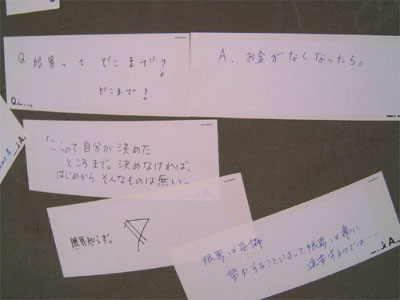 Q. 限界って どこまで?
どこまで?
A. お金がなくなったら。
"ここ"って自分が決めた
ところまで。決めなければ、
はじめから そんなものは無い。
限界知らず。
限界は
努力することによって限界は常に